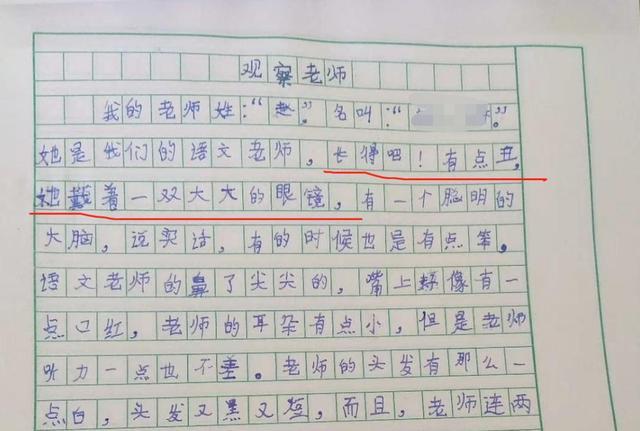 观察老师
我的老师姓:“赵”。名叫:“”。
她是我们的语文老师,长得吧!有点丑,
她戴着一双大大的眼镜,有一个脑明的
大脑,说实话,有的时候也是有点笨。
语文老师的鼻了尖尖的,嘴上好像有一
点口红,老师的耳朵有点小,但是老师
听力一点也不差。老师的头发有那么一
点白,头发又黑又短,而且,老师连两